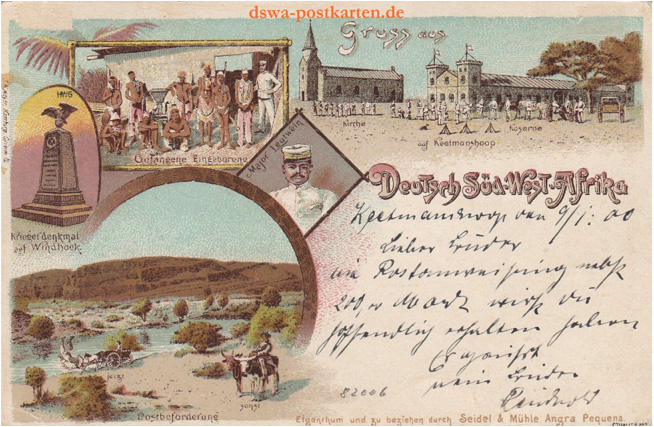 dswa-postkarten.de
Gruss aus
HWG
Kirche
Kaserne
auf Keetmanshoop
Gefangene Eingeborene
Major Leutwein
Deutsch Süd-West-Afrika
Kriegerdenkmal
auf Windhoek
Keetmanshoop den 9/1. 00
Lieber Brüder
die Postanweisung nebst
200, Mark wirst du
hoffentlich erhalten haben
Es grüßt
dein Bruder
jetzt
sonst
Postbeförderung
82006
Eigenthum und zu beziehen durch Seidel & Mühle Angra Pequena.